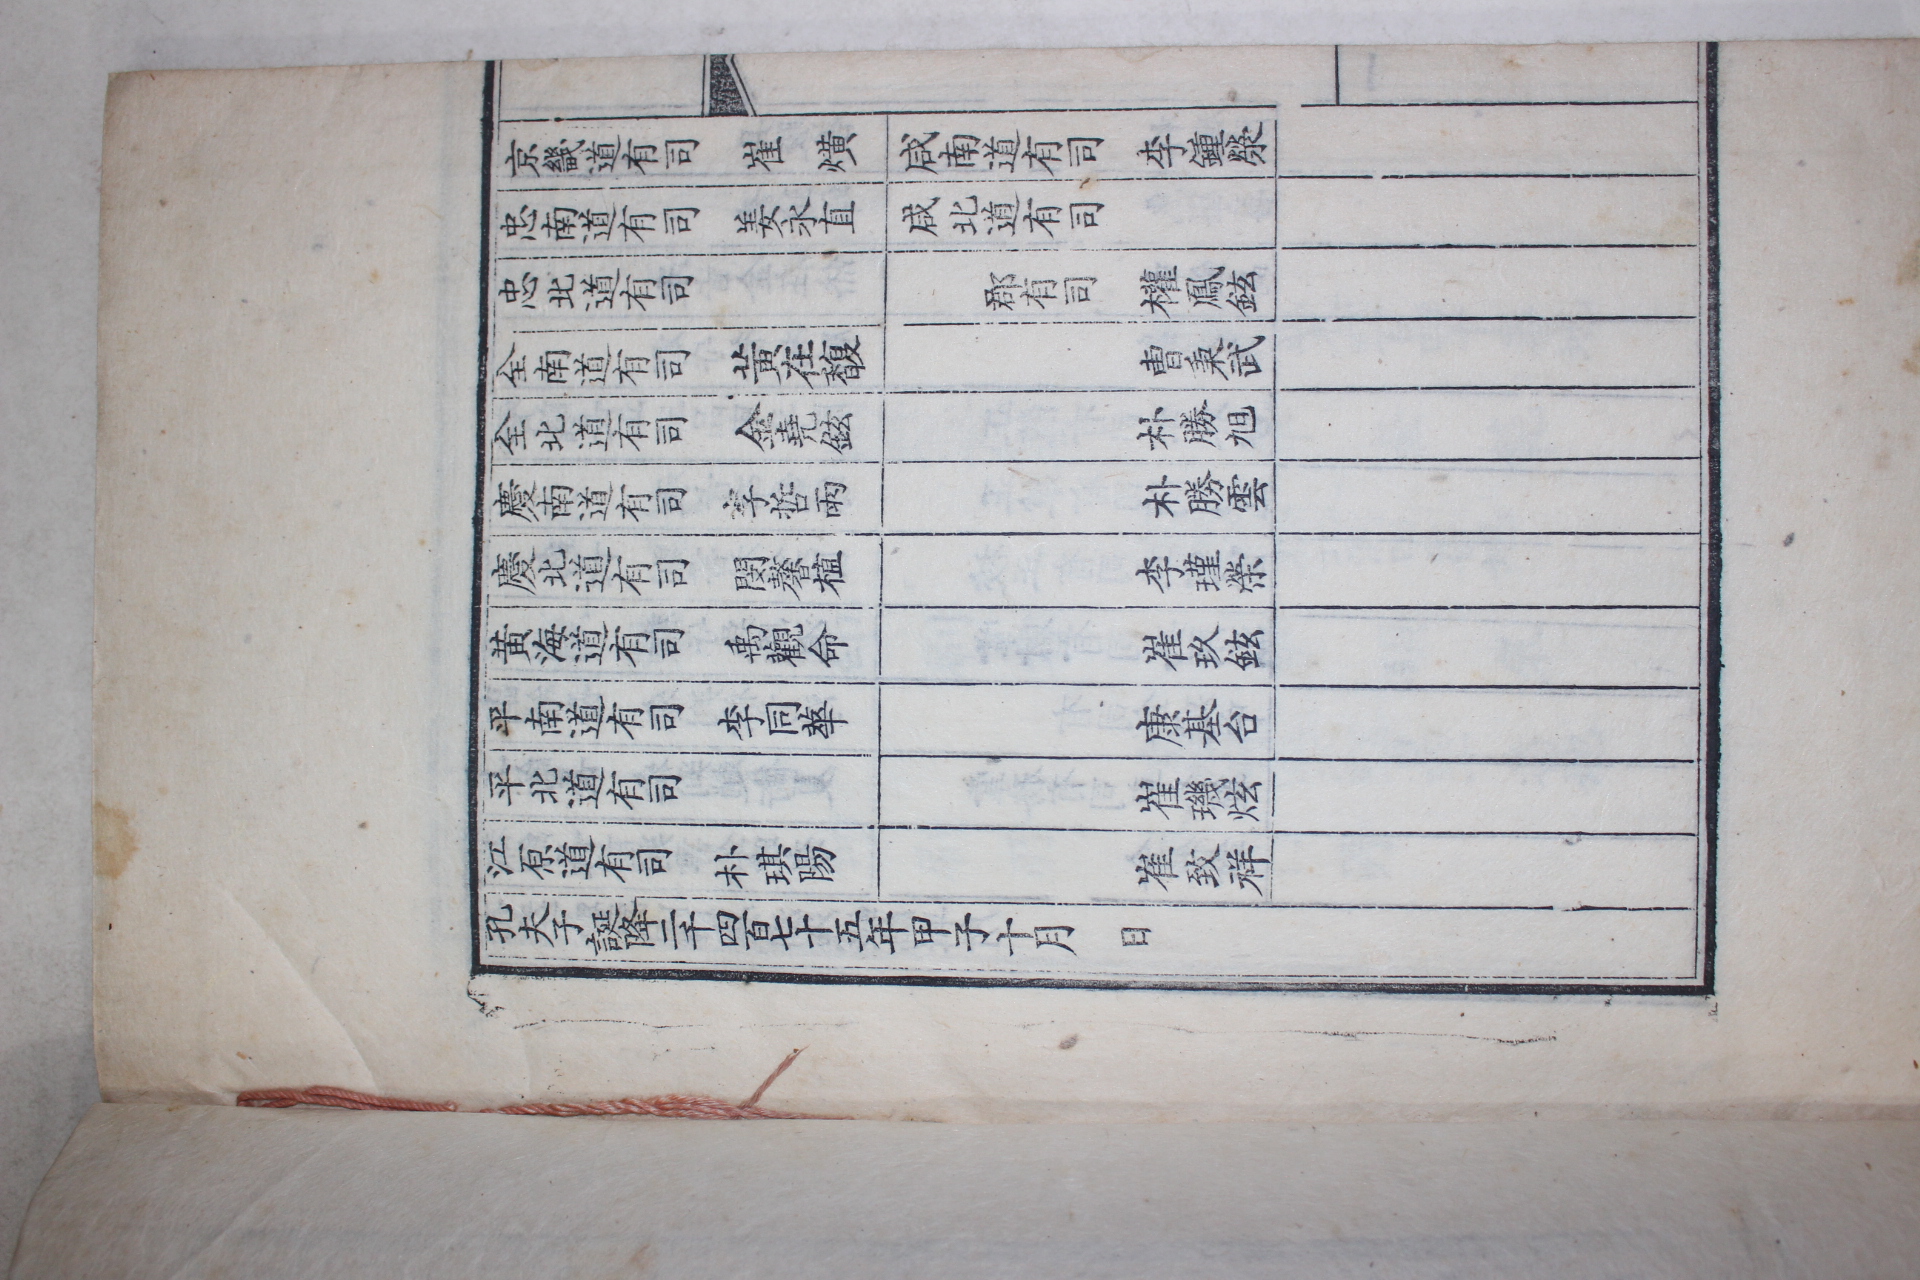 京畿道有司 崔熿
忠南道有司 姜永直
忠北道有司
全南道有司 黃在馥
全北道有司 金堯鉉
慶南道有司 李哲雨
慶北道有司 閔馨植
黃海道有司 禹觀命
平南道有司 李同華
平北道有司
江原道有司 朴琪陽
咸南道有司 李鍾滎
咸北道有司
郡有司 權鳳鉉
曺秉武
朴勝旭
朴勝雲
李瑾榮
崔玖鉉
康基台
崔璣炫
崔致祥
孔夫子誕降二千四百七十五年甲子十月 日